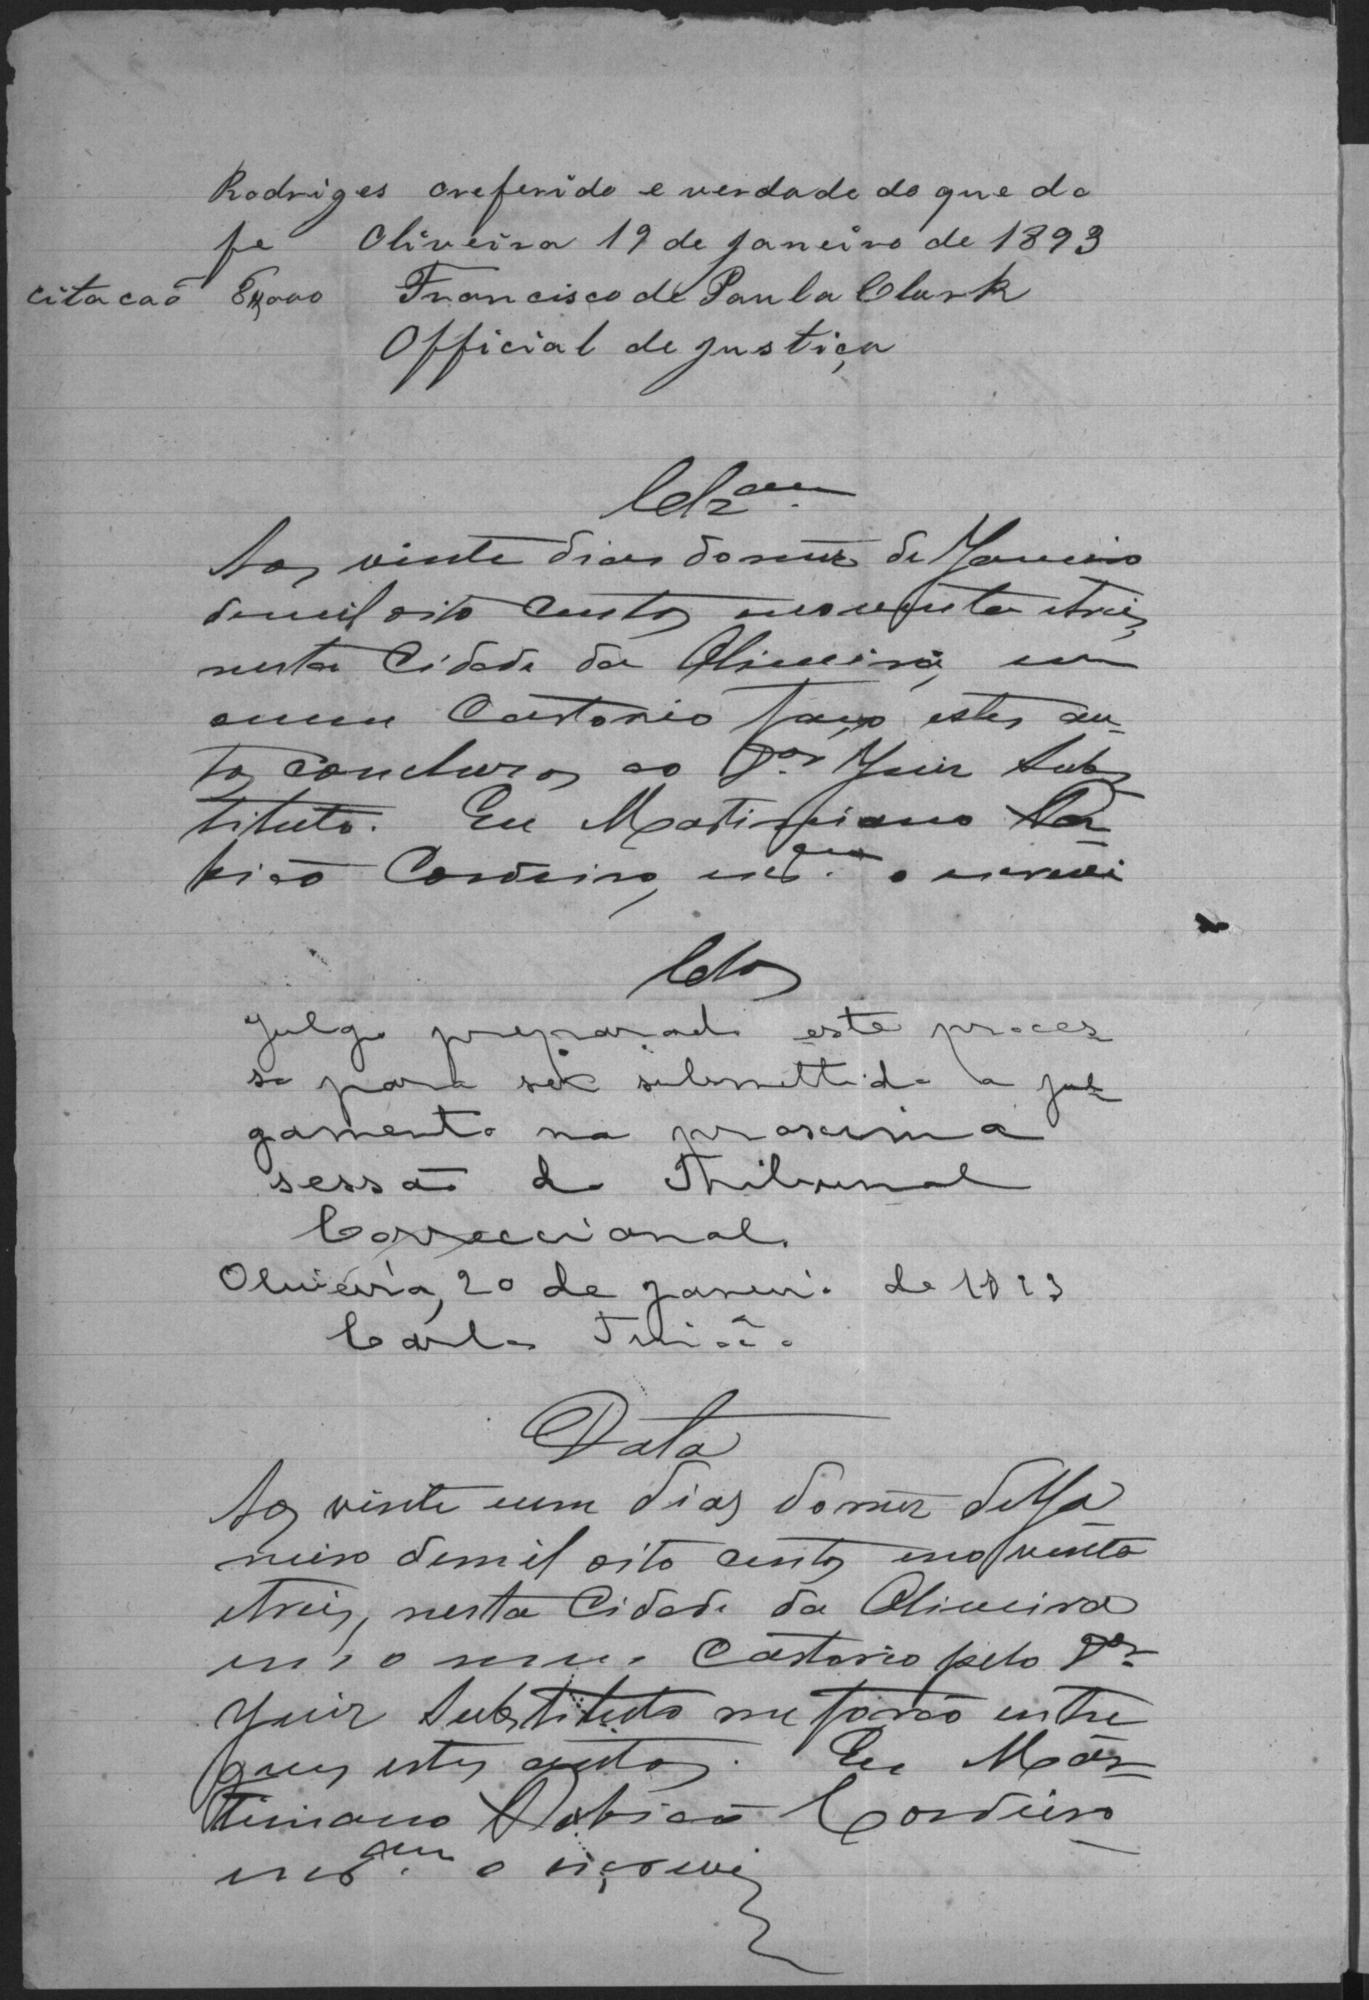 Rodriges oreferido e verdade do que do
fe Oliveira 19 de janeiro de 1893
citacaõ 8$000 Francisco de Paula Clark
Official de justiça
Clzam.
Aos vinte dias domez de Janeiro
demil oito centos enoventa etreis,
nesta Cidade da Oliveira, em
omeu Cartorio faço estes au-
tos concluzos ao Dor. Juiz Subs
tituto. Eu Martimiano
Cordeiro, escram. o escrevi
Clos
Julgo preparado este proces
so para ser submettido a jul
gamento na proxima
sessão do Tribunal
Correccional.
Oliveira, 20 de janeiro de 1893
Carlos
Data
Aos vinte eum dias domez deJa
neiro demil oito centos enoventa
etreis, nesta Cidade da Oliveira
em o meu Cartorio pelo Dor.
Juiz Substituto me forão entre
gues estes autos. Eu Mar-
timiano Cordeiro
escram. o escrevi